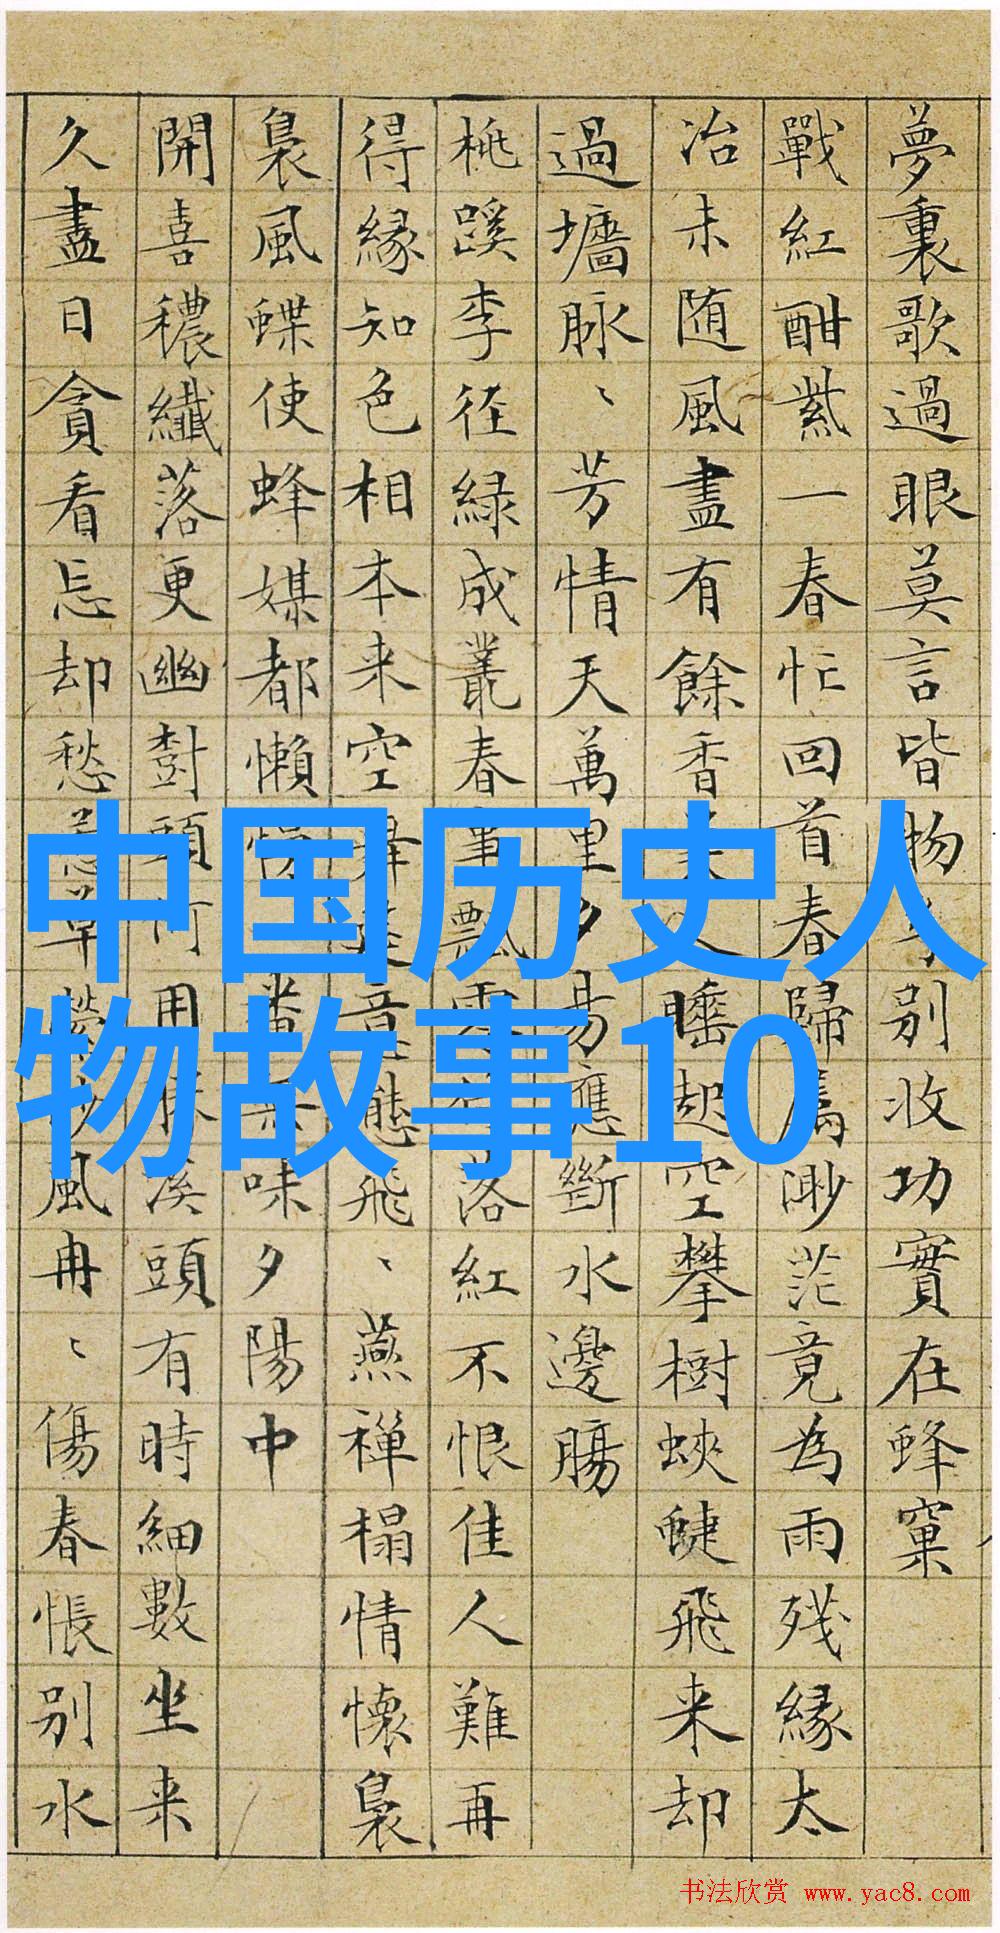 夢裏歌過眼莫言皆物別收功實在蜂窠
戰紅酣紫一春忙回首春歸屬渺茫竟為雨殘緣太
冶未随風盡有餘香人睡起空攀樹蛺蜨飛来却
過墻脉、芳情天萬里夕易應斷水邊腸
桃蹊李徑緑成叢春事飄落紅不恨佳人難再
得緣知色相本来空意態飛、燕禪榻情懷裊
裊風蝶使蜂媒都懶番味夕陽中
開喜穠纖落更幽對頭用溪頭有時細數坐来
久盡日貪看忘却愁草風冉、傷春悵別水
中国历史人
物故事10
书法欣赏 www.yac8.com